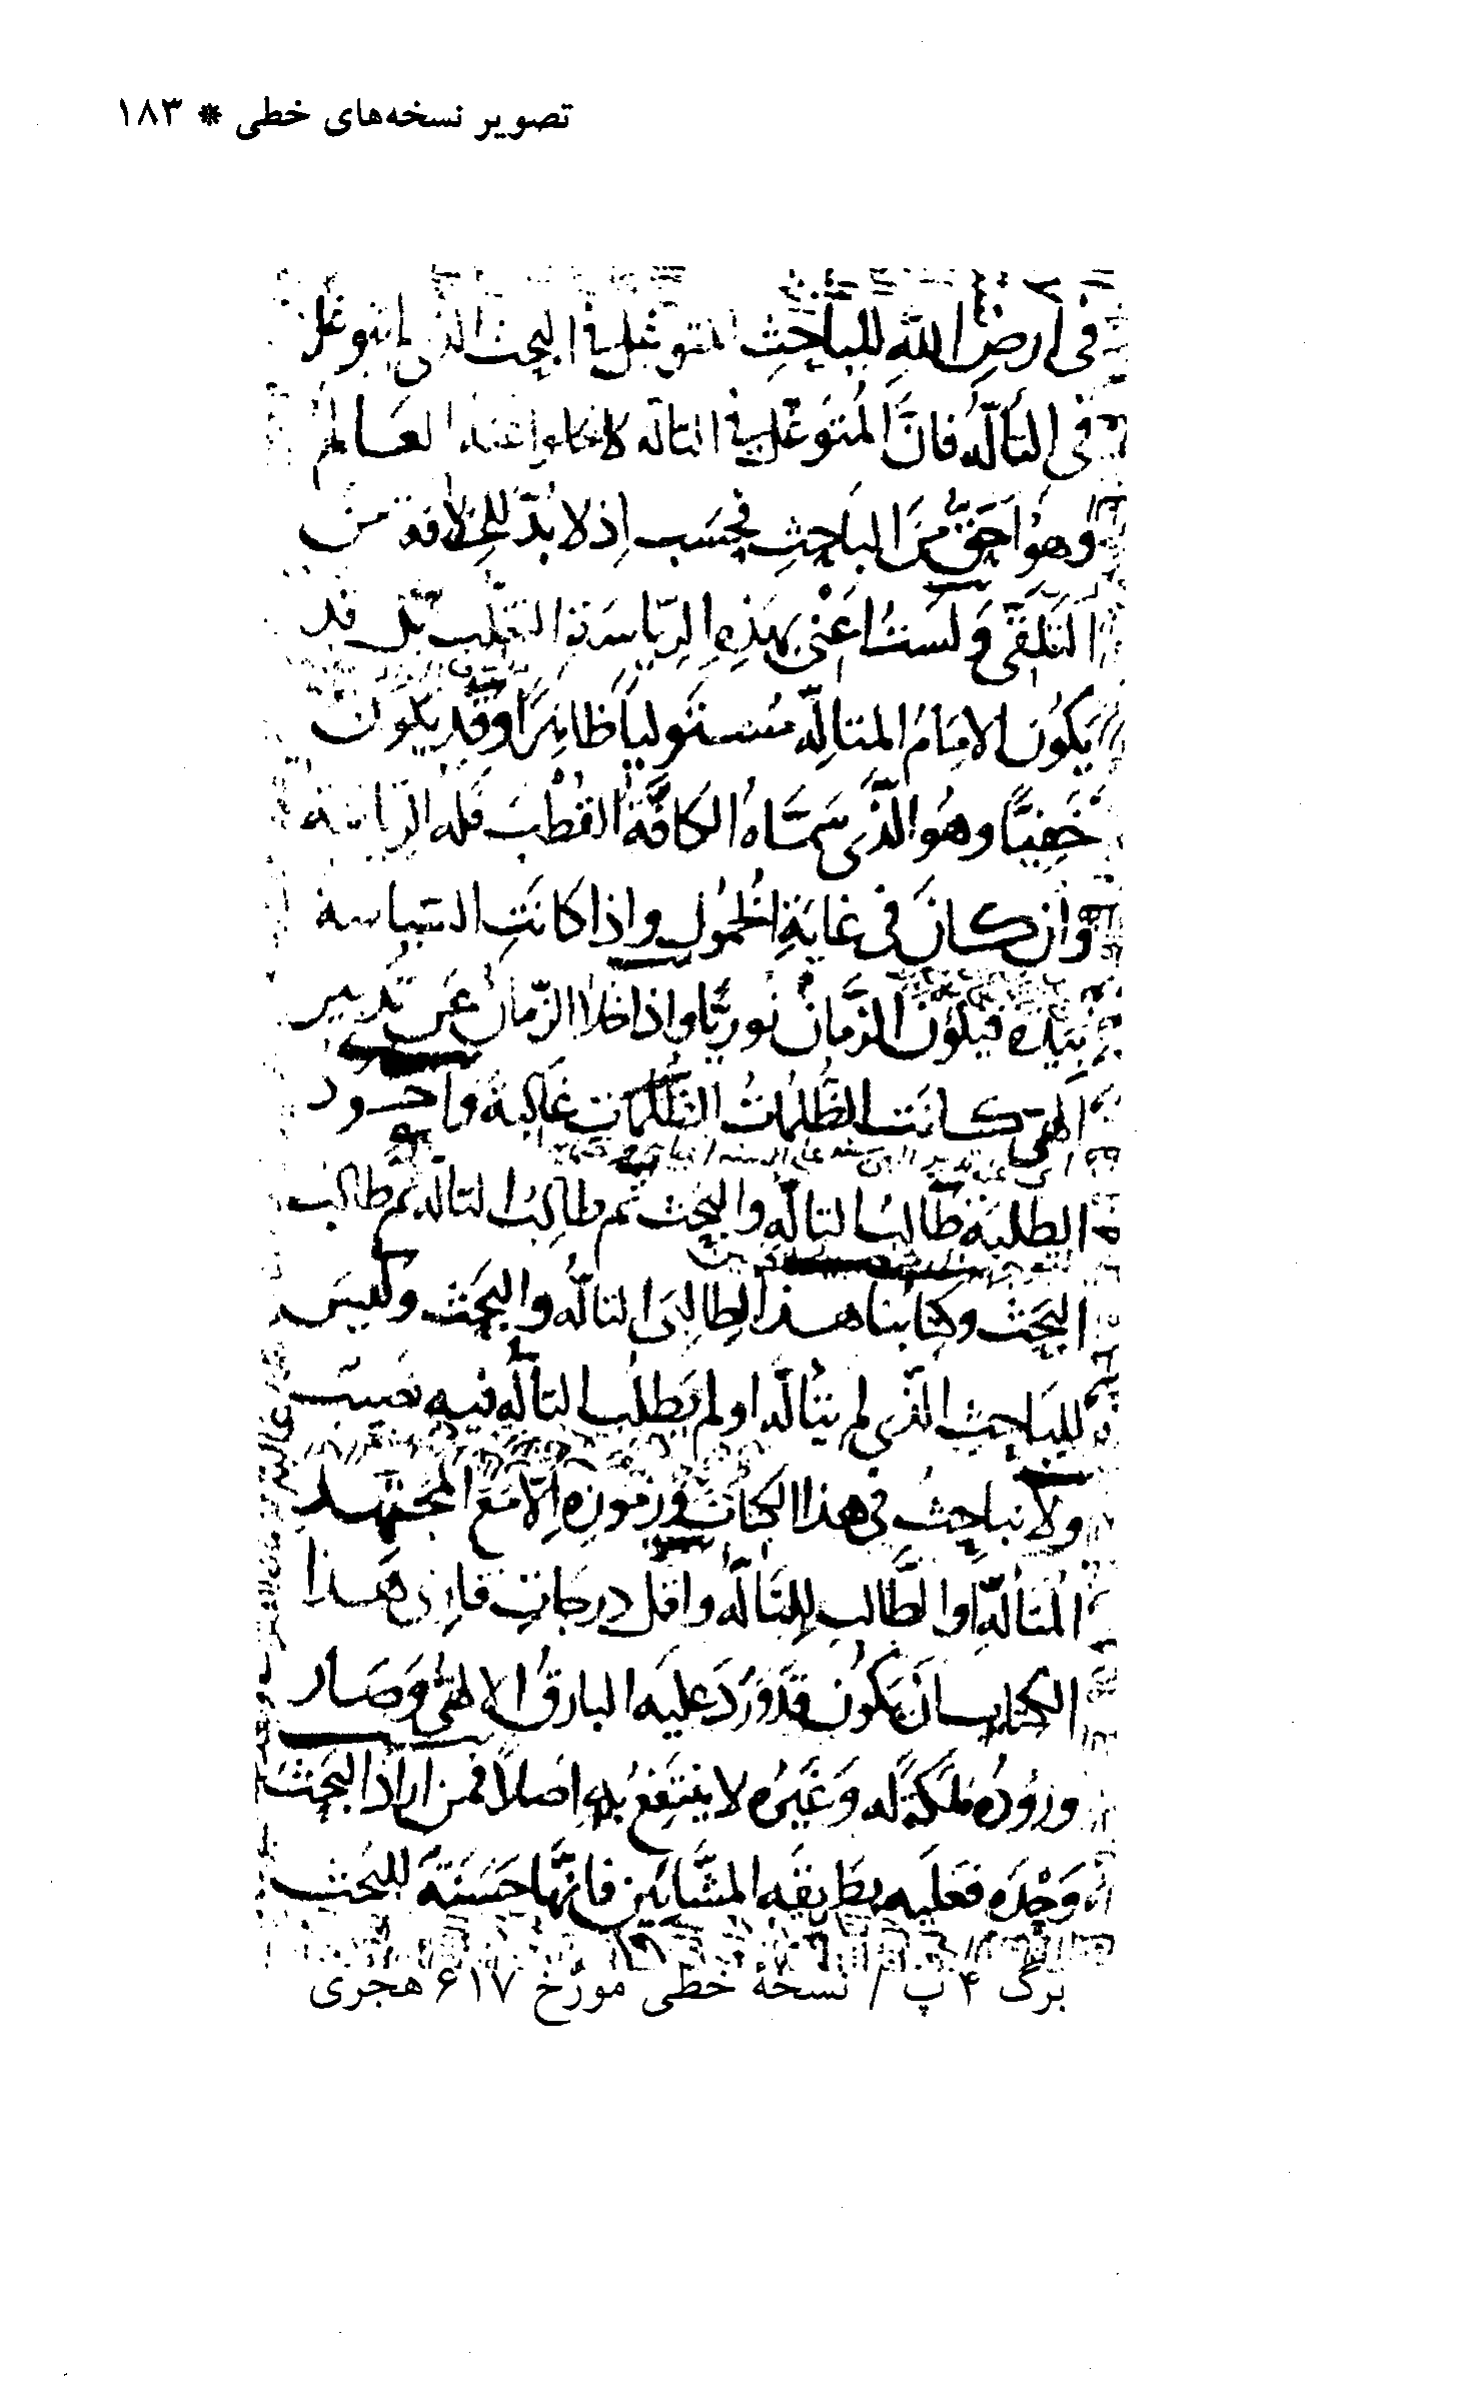 تصویر نسخه‌های خطی * ۱۸۳
فی ارض الله للباحث المتوغل فی البحث الذی لم یتوغل
فی التألّه فانّ المتوغل فی التاله لا یخلوا عنه العالم
وهو احقّ من الباحث فحسب اذ لا بدّ للخلافة من
التلقی ولست اعنی بهذه الریاسة التغلب بل قد
یکون الامام المتالّه مستولیا ظاهرا وقد یکون
خفیّا وهو الذی سمّاه الکافّة القطب فله الریاسة
وان کان فی غایة الخمول واذا کانت السیاسة
بیده فیکون الزمان نوریّا واذا خلا الزمان عن تدبیر
الهی کانت الظلمات غالبة واجود
الطلبة طالب التالّه والبحث ثم طالب التالّه ثم طالب
البحث وکتابنا هذا لطالبی التالّه والبحث ولیس
للباحث الذی لم یتألّه او لم یطلب التالّه فیه نصیب
ولا نباحث فی هذا الکتاب ورموزه الّا مع المجتهد
المتألّه او الطّالب للتالّه واقل درجات قارئ هذا
الکتاب ان یکون قد ورد علیه البارق الالهیّ وصار
وروده ملکة له وغیره لا ینتفع به اصلا فمن اراد البحث
وحده فعلیه بطریقة المشّائین فانّها حسنة للبحث
برگ ۴ پ / نسخهٔ خطی مورّخ ۶۱۷ هجری